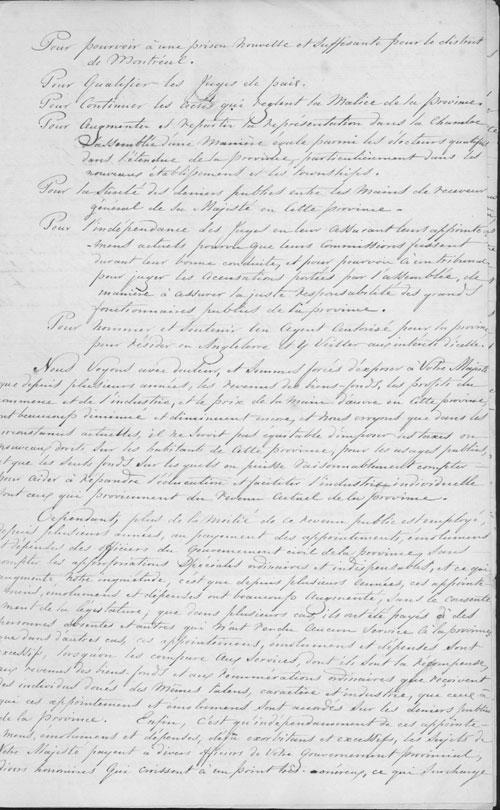 Pour pourvoir à une prison nouvelle et suffisante pour le district
de Montréal.
Pour Qualifier les Juges de paix.
Pour Continuer les actes qui reglent la Malice de la province.
Pour Augmenter et repartir la Représentation dans la Chambre
d'assemblée d'une Manière égale parmi les électeurs qualifiés
dans l'étendue de la province, particulièrement dans les
nouveaux établissemens et les townships.
Pour la Sureté des deniers publics entre les Mains du receveur
général de Sa Majesté en Cette province.
Pour l'indépendance des Juges en leur assurant leurs appointe-
mens actuels pourvu que leurs Commissions fussent
durant leur bonne conduite, et pour pourvoir à un tribunal
pour juger les accusations portées par l'assemblée, de
manière à assurer la juste responsabilité des grands
fonctionnaires publics de la province.
Pour nommer et soutenir un Agent Autorisé pour la province
pour résider en Angleterre et y Veiller aux intérêts d'icelle.
Nous Voyons avec douleur, et Sommes forcés d'exposer à Votre Majesté
que depuis plusieurs années, les revenus des biens-fonds, les profits du
commerce et de l'industrie, et le prix de la Main d'œuvre en Cette province,
ont beaucoup diminué et diminuent encore, et Nous croyons que dans les
circonstances actuelles, il ne serait pas équitable d'imposer des taxes ou
nouveaux droits sur les habitants de Cette province, pour les usages publics,
et que les seuls fonds sur lesquels on puisse raisonnablement compter
pour aider à répandre l'éducation et faciliter l'industrie individuelle
sont ceux qui proviennent du revenu actuel de la province.
Cependant, plus de la moitié de ce revenu public est employé,
depuis plusieurs années, au payement des appointemens, émolumens
et dépenses des officiers du Gouvernement civil de la province, sans
compter les appropriations Spéciales ordinaires et indispensables, et ce qui
augmente Notre inquiétude, c'est que depuis plusieurs années, ces appointe-
mens, emolumens et dépenses ont beaucoup Augmenté, sans le consente-
ment de la legislature, que dans plusieurs cas, ils ont été payés à des
personnes absentes et autres qui N'ont rendu Aucun Service à la province,
que dans d'autres cas, ces appointemens, émolumens et dépenses Sont
excessifs lorsqu'on les compare Aux Services, dont ils sont la récompense,
aux revenus des biens-fonds et aux rémunérations ordinaires que reçoivent
des individus doués des Mêmes talens, caractère et industrie, que ceux à
qui ces appointemens et emolumens sont accordés Sur les deniers publics
de la Province. Enfin, C'est qu'indépendamment de ces appointe-
mens, emolumens et dépenses, déjà exorbitans et excessifs, les sujets de
Votre Majesté payent à divers officiers de Votre Gouvernement provincial,
divers honoraires Qui croissent à un point très onéreux, ce qui surcharge